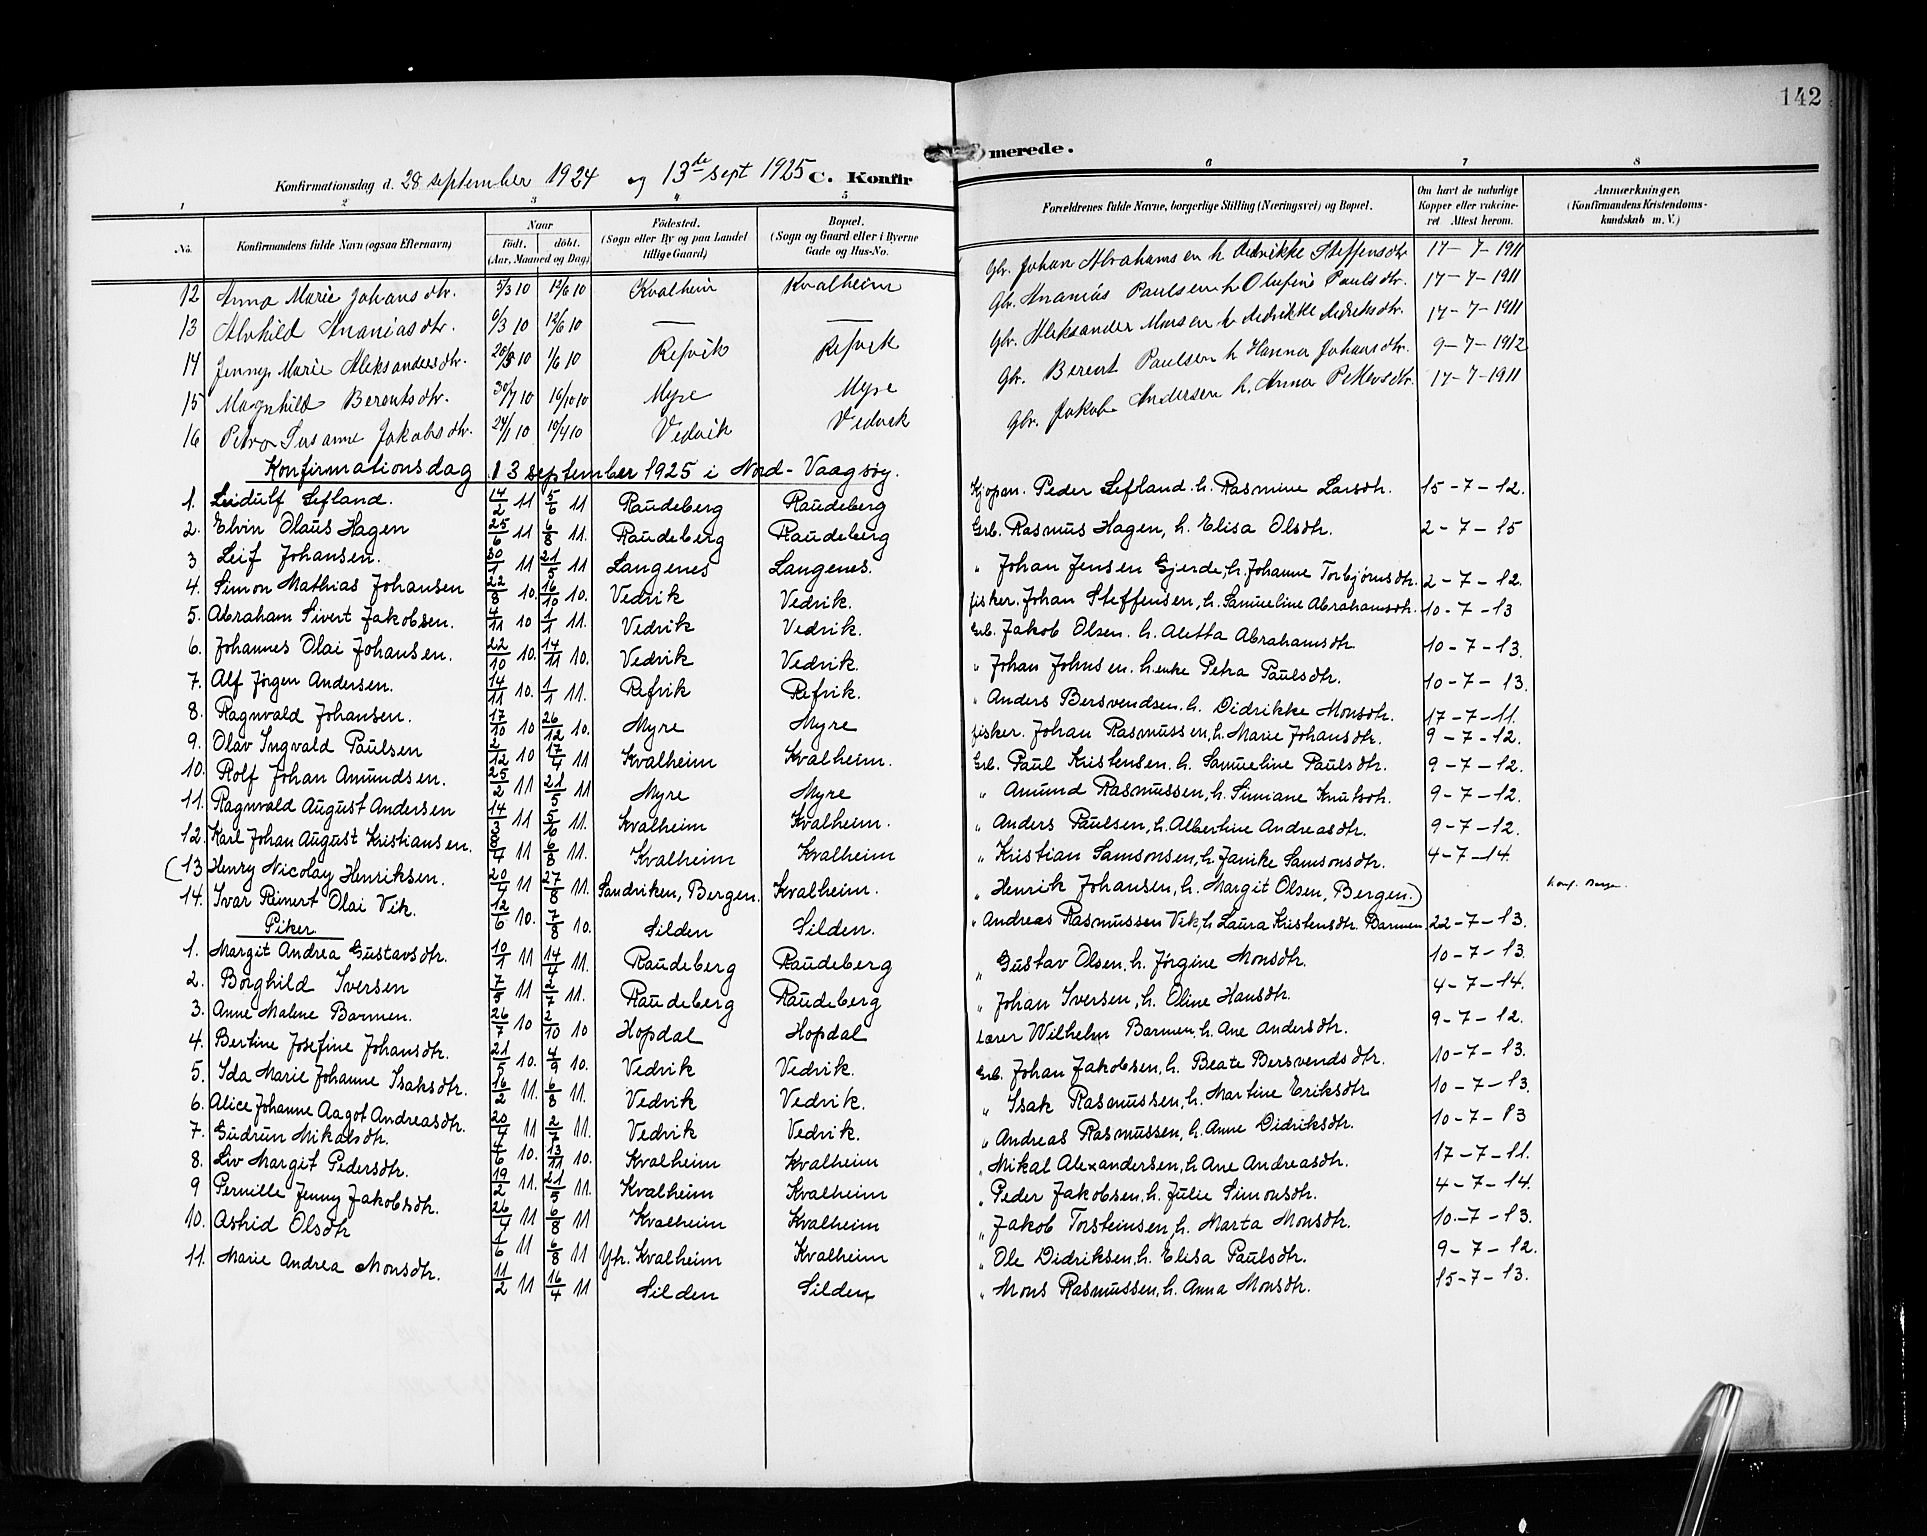 142
Konfirmationsdag d. 28 september 1924 og 13de sept 1925 C. Konfirmerede.
1 2 3 4 5 6 7 8
No. Konfirmandens fulde Navn (ogsaa Efternavn) Naar født. døbt. (Aar, Maaned og Dag) Fødested. (Sogn eller By og paa Landet tillige Gaard) Bopæl. (Sogn og Gaard eller i Byerne Gade og Hus-No. Forældrenes fulde Navne, borgerlige Stilling (Næringsvei) og Bopæl. Om havt de naturlige Kopper eller vaccineret Attest herom. Anmærkninger. (Konfirmandens Kristendomskundskab m. V.)
12 Anna Marie Johansdtr. 5/3 10 12/6 10 Kvalheim Kvalheim Gbr. Johan Abrahamsen h. Didrikke Steffensdtr 17-7-1911
13 Alvhild Ananiasdtr. 6/3 10 12/6 10 — — Gbr. Ananias Paulsen h Olufine Paulsdtr. 17-7-1911
14 Jenny Marie Aleksandersdtr. 20/3 10 1/6 10 Refvik Refvik Gbr. Aleksander Monsen h Didrikke Didriksdtr. 17-7-1911
15 Magnhild Berentsdtr. 30/7 10 16/10 10 Myre Myre Gbr. Berent Paulsen h Hanna Johansdtr. 9-7-1912
16 Petra Susanne Jakobsdtr. 24/1 10 10/4 10 Vedvik Vedvik Gbr. Jakob Andersen h. Anna Pettersdtr. 17-7-1911
Konfirmationsdag 13 september 1925 i Nord-Vaagsøy.
1. Leidulf Sefland. 14/2 11 5/6 11 Raudeberg Raudeberg Kjøpm. Peder Sefland. h. Rasmine Larsdtr. 15-7-12.
2. Elvin Olaus Hagen 25/6 11 6/8 11. Raudeberg Raudeberg Grb. Rasmus Hagen, h. Elisa Olsdtr. 2-7-15
3 Leif Johansen. 30/1 11 21/5 11 Langenes Langenes. " Johan Jensen Gjerde, h. Johanne Torbjørnsdtr. 2-7-12.
4. Simon Mathias Johansen 22/8 10. 16/10 10. Vedvik Vedvik. fisker. Johan Steffensen, h. Samueline Abrahamsdtr. 10-7-13
5. Abraham Sivert Jakobsen. 4/11 10 1/1 11. Vedvik Vedvik. Grb. Jakob Olsen. h. Aletta Abrahamsdtr 10-7-13.
6. Johannes Olai Johansen. 22/10 10. 14/11 10. Vedvik Vedvik. " Johan Johnsen. h. enke Petra Paulsdtr. 10-7-13.
7. Alf Jørgen Andersen. 14/11 10. 1/1 11. Refvik Refvik. " Anders Bersvendsen. h. Didrikke Monsdtr. 17-7-11.
8. Ragnvald Johansen. 17/10 10 26/12 10. Myre Myre fisker. Johan Rasmussen, h. Marie Johansdtr. 9-7-12.
9. Olav Ingvald Paulsen 2/12 10 17/4 11 Kvalheim Kvalheim. Grb. Paul Kristensen. h. Samueline Paulsdtr. 9-7-12.
10. Rolf Johan Amundsen. 25/2 11 21/5 11 Myre Myre " Amund Rasmussen, h. Simiane Knutsdtr. 9-7-12.
11. Ragnvald August Andersen 14/3 11 5/6 11. Kvalheim Kvalheim. " Anders Paulsen, h. Albertine Andreasdtr. 9-7-12.
12. Karl Johan August Kristiansen. 8/4 11 6/8 11. Kvalheim Kvalheim " Kristian Samsonsen, h. Janike Samsonsdtr. 4-7-14.
(13 Henry Nicolay Henriksen. 20/4 11 27/8 11. Sandviken, Bergen. Kvalheim. " Henrik Johansen, h. Margit Olsen, Bergen.) konf. Bergen.
14. Ivar Reinert Olai Vik. 12/6 10. 7/8 10. Silden Silden. " Andreas Rasmussen Vik, h. Laura Kristensdtr. Barmen. 22-7-13.
Piker.
1. Margit Andrea Gustavsdtr. 10/1 11 14/4 11. Raudeberg Raudeberg " Gustav Olsen. h. Jørgine Monsdtr. 10-7-13.
2. Borghild Iversen 7/5 11 2/7 11. Raudeberg Raudeberg " Johan Iversen, h. Oline Hansdtr. 4-7-14.
3. Anne Malene Barmen. 26/7 10 2/10 10 Hopdal Hopdal Lærer Wilhelm Barmen, h. Ane Andersdtr. 9-7-12.
4. Bertine Josefine Johansdtr. 21/5 10. 4/9 10. Vedvik Vedvik. Grb. Johan Jakobsen, h. Beate Bersvendsdtr. 10-7-13.
5. Ida Marie Johanne Isaksdtr. 16/2 11. 6/8 11. Vedvik Vedvik. " Isak Rasmussen, h. Martine Eriksdtr 10-7-13.
6. Alice Johanne Aagot Andreasdtr. 20/4 11 2/7 11. Vedvik Vedvik. " Andreas Rasmussen, h. Anne Didriksdtr. 10-7-13
7. Gudrun Mikalsdtr. 4/6 10. 13/11 10. Kvalheim Kvalheim " Mikal Alexandersen, h. Ane Andreasdtr. 17-7-11.
8. Liv Margit Pedersdtr. 19/2 11. 21/5 11. Kvalheim Kvalheim " Peder Jakobsen, h. Julie Simonsdtr. 4-7-14.
9 Pernille Jenny Jakobsdtr. 26/4 11 6/8 11 Kvalheim Kvalheim " Jakob Torsteinsen, h. Marta Monsdtr. 10-7-13.
10. Astrid Olsdtr 1/6 11 6/8 11 Ytr. Kvalheim Kvalheim " Ole Didriksen, h. Elisa Paulsdtr. 9-7-12.
11. Marie Andrea Monsdtr. 11/2 11 16/4 11 Silden Silden " Mons Rasmussen, h. Anna Monsdtr. 15-7-13.